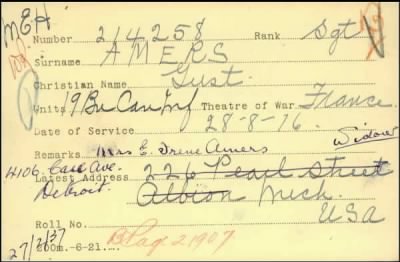 MEH
Number 214258 Rank Sgt
Surname AMERS
Christian Name Gust.
Units 19 Bn Can Inf Theatre of War France
Date of Service 28-8-16.
Remarks Mrs E. Irene Amers Widow
4106 Ave.
Latest Address 226 Pearl Street
Detroit. Albion Mich.
USA
Roll No. B Pag 21907
27/2/37
200m.-6-21.